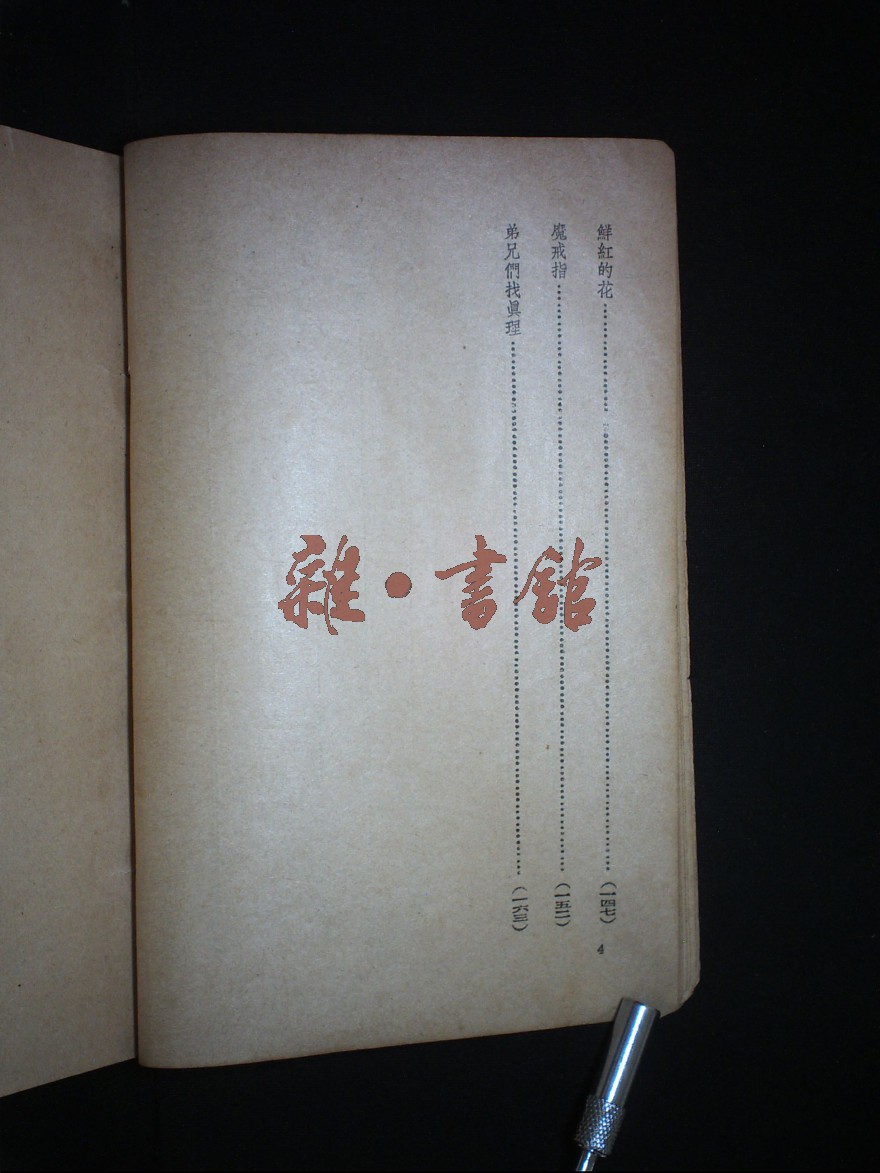 鮮紅的花……(一四七)
魔戒指……(一五二)
弟兄們找眞理……(一六三)
4
雜•書館